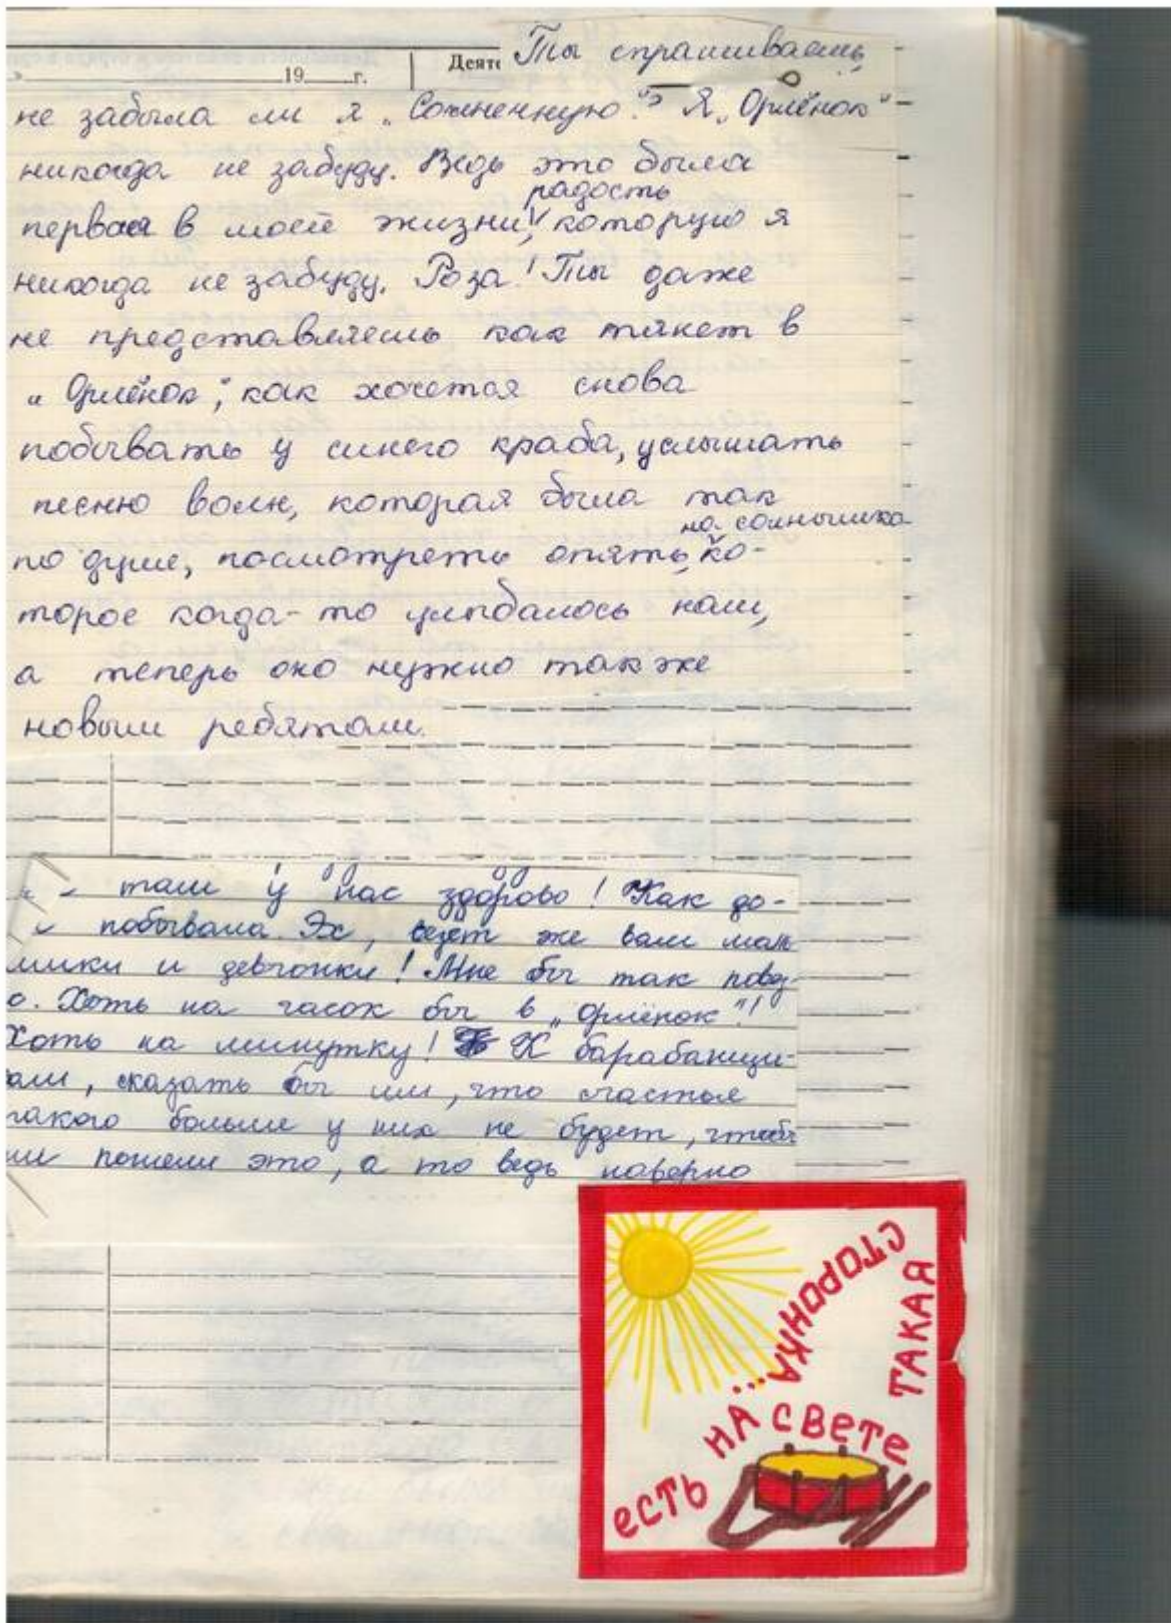 19 г. Деяте
Ты спрашиваешь,
не забыла ли я „Солнечную"? Я „Орлёнок"
никогда не забуду. Ведь это была
радость
первая в моей жизни, которую я
никогда не забуду. Роза! Ты даже
не представляешь как тянет в
„Орлёнок", как хочется снова
побывать у синего краба, услышать
песню волн, которая была так
на солнышко
по душе, посмотреть опять, ко-
торое когда-то улыбалось нам,
а теперь оно нужно также
новым ребятам.
там у нас здорово! Как до-
побывала. Эх, везёт же вам маль
мики и девчонки! Мне бы так повез-
о. Хоть на часок бы в „Орлёнок"!
Хоть на минутку! К барабанщи-
ам, сказать бы им, что счастья
такого больше у них не будет, чтобы
ни поняли это, а то ведь наверно
есть на свете
такая
сторонка...